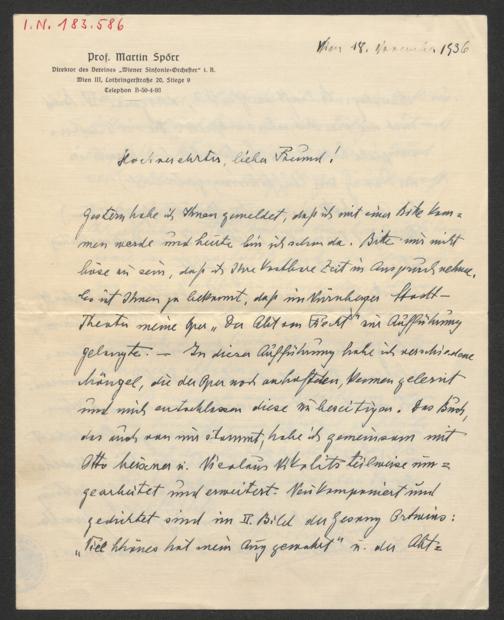 I.N. 183.586
Wien 18. November 1936
Prof. Martin Spörr
Direktor des Vereines „Wiener Sinfonie-Orchester“ i. R.
Wien III, Lothringerstraße 20, Stiege 9
Telephon B-50-4-80
Hochverehrter, lieber Freund!
Gestern habe ich Ihnen gemeldet, daß ich mit einer Bitte kom=
men werde und heute bin ich schon da. Bitte mir nicht
böse zu sein, daß ich Ihre kostbare Zeit in Anspruch nehme.
Es ist Ihnen ja bekannt, daß im Nürnberger Stadt-
Theater meine Oper „Der Abt von Fiecht“ zur Aufführung
gelangte. — In dieser Aufführung habe ich verschiedene
Mängel, die der Oper noch anhafteten, kennen gelernt
und mich entschlossen diese zu beseitigen. Das Buch,
das auch von mir stammt, habe ich gemeinsam mit
Otto u. Nicolaus teilweise um=
gearbeitet und erweitert. Neukomponiert und
gedichtet sind im II. Bild der Gesang Ortwins:
„Viel schönes hat mein Aug gewahrt“ u. der Abt=